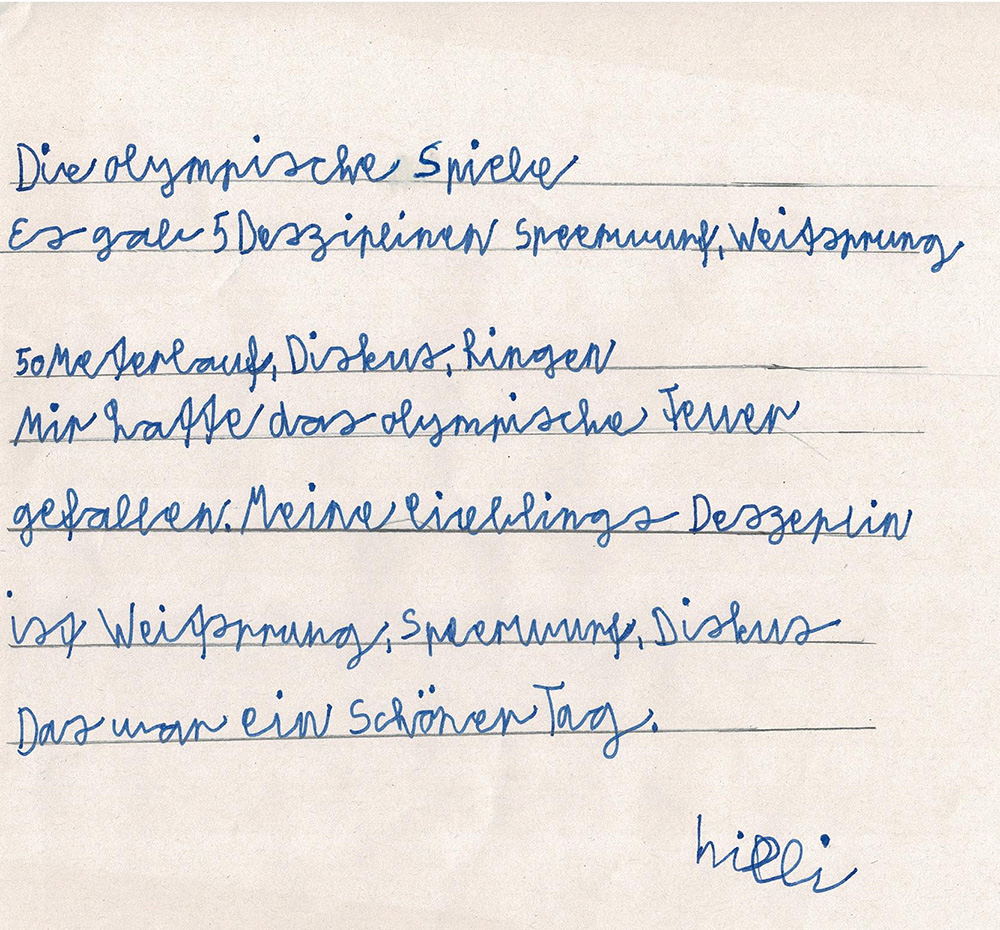 Die olympische Spiele
Es gab 5 Deszipleinen Speerwurf, Weitsprung
50 Meterlauf, Diskus, Ringen
Mir hatte das olympische Feuer
gefallen. Meine lieblings Deszeplin
ist Weitsprung, Speerwurf, Diskus
Das war ein Schöner Tag.